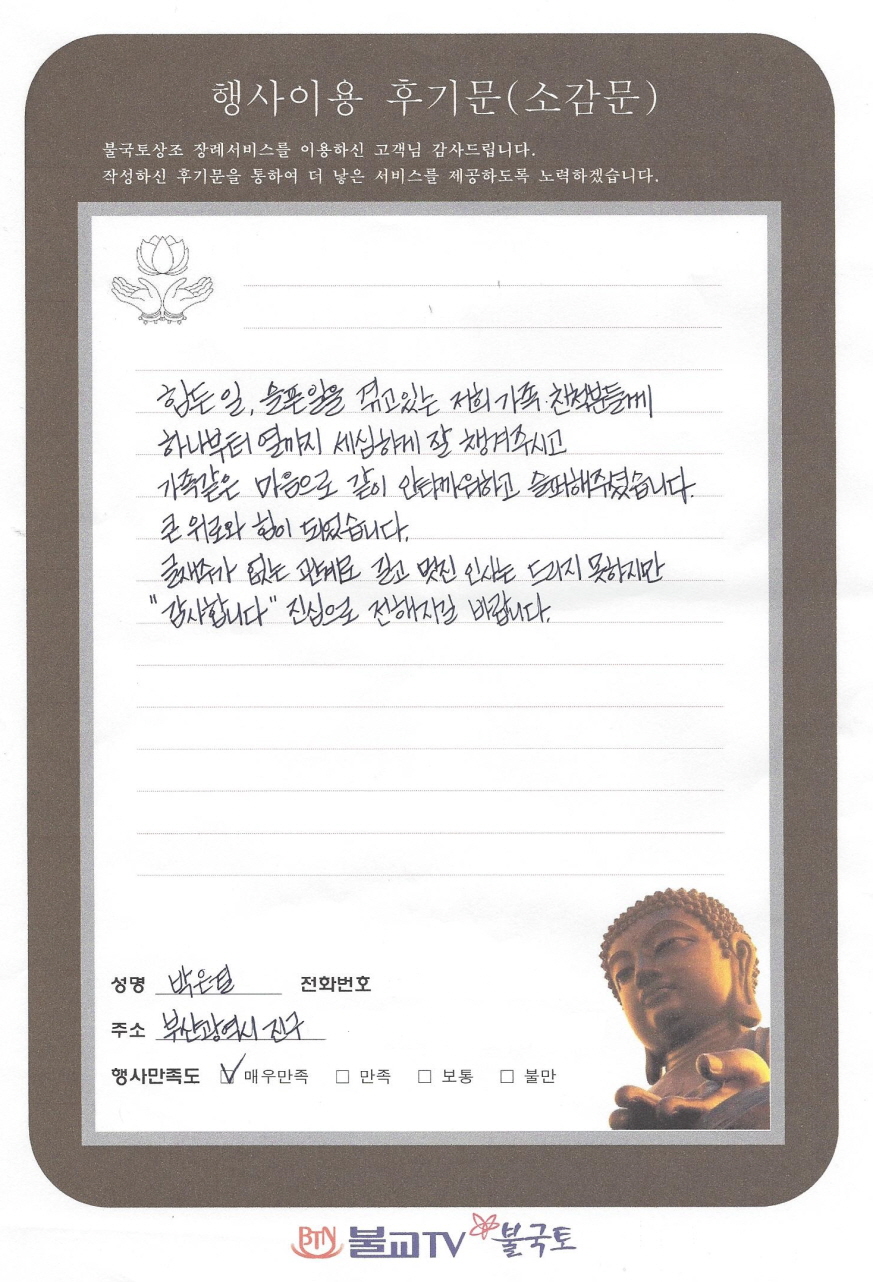 행사이용 후기문(소감문)
불국토상조 장례서비스를 이용하신 고객님 감사드립니다.
작성하신 후기문을 통하여 더 낳은 서비스를 제공하도록 노력하겠습니다.
힘든 일, 슬픈일을 겪고있는 저희 가족·친척분들께
하나부터 열까지 세심하게 잘 챙겨주시고
가족같은 마음으로 같이 안타까워하고 슬퍼해주셨습니다.
큰 위로와 힘이 되었습니다.
글재주가 없는 관계로 길고 멋진 인사는 드리지 못하지만
"감사합니다" 진심으로 전해지길 바랍니다.
성명 전화번호
주소 부산광역시 진구
행사만족도 매우만족 만족 보통 불만
BTN 불교TV 불국토